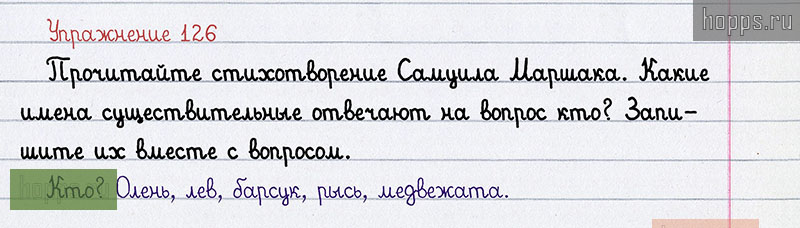 hopps.ru
Упражнение 126
Прочитайте стихотворение Самуила Маршака. Какие
имена существительные отвечают на вопрос кто? Запи-
шите их вместе с вопросом.
Кто? Олень, лев, барсук, рысь, медвежата.